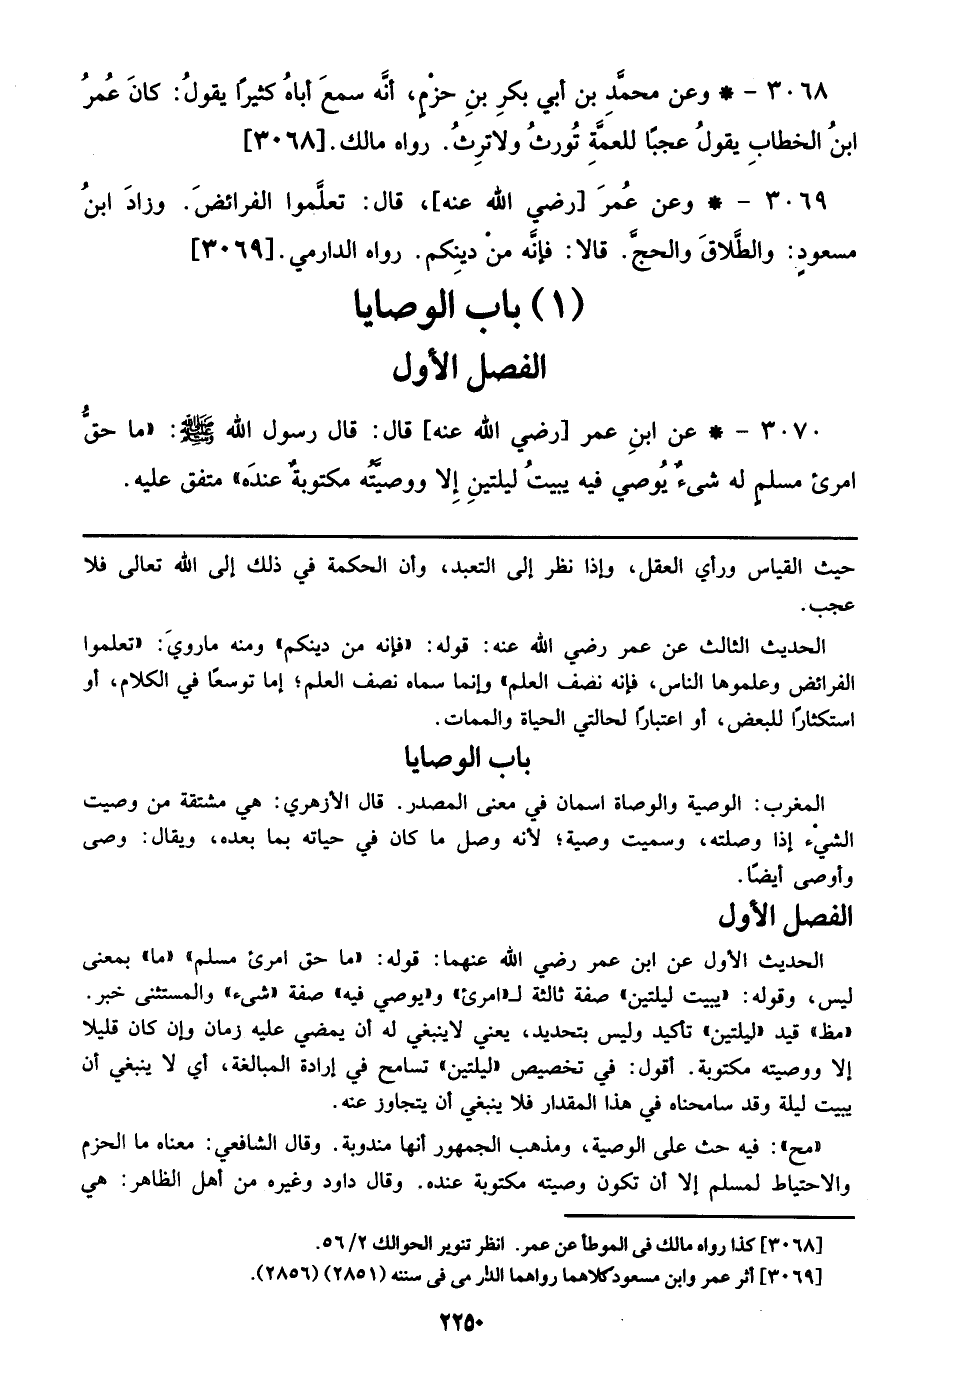 ٣٠٦٨ - * وعن محمدَّ بن أبي بكرِ بنِ حزْمٍ، أنَّه سمعَ أباهُ كثيرًا يقولُ: كانَ عُمرُ
ابنُ الخطابِ يقولُ عجبًا للعمةِ تُورثُ ولاترِثُ. رواه مالك.[٣٠٦٨]
٣٠٦٩ - * وعن عُمرَ [رضي الله عنه]، قال: تعلَّموا الفرائضَ. وزادَ ابنُ
مسعودٍ: والطَّلاقَ والحجَّ. قالا: فإنَّه منْ دينِكم. رواه الدارمي.[٣٠٦٩]
(١) باب الوصايا
الفصل الأول
٣٠٧٠ - * عن ابنِ عمر [رضي الله عنه] قال: قال رسول الله ﷺ: «ما حقُّ
امرئ مسلمٍ له شىءٌ يُوصي فيه يبيتُ ليلتينِ إلا ووصيَّتُه مكتوبةٌ عندَه» متفق عليه.
حيث القياس ورأي العقل، وإذا نظر إلى التعبد، وأن الحكمة في ذلك إلى الله تعالى فلا
عجب.
الحديث الثالث عن عمر رضي الله عنه: قوله: «فإنه من دينكم» ومنه مارويَ: «تعلموا
الفرائض وعلموها الناس، فإنه نصف العلم» وإنما سماه نصف العلم؛ إما توسعًا في الكلام، أو
استكثارًا للبعض، أو اعتبارًا لحالتي الحياة والممات.
باب الوصايا
المغرب: الوصية والوصاة اسمان في معنى المصدر. قال الأزهري: هي مشتقة من وصيت
الشيْء إذا وصلته، وسميت وصية؛ لأنه وصل ما كان في حياته بما بعده، ويقال: وصى
وأوصى أيضًا.
الفصل الأول
الحديث الأول عن ابن عمر رضي الله عنهما: قوله: «ما حق امرئ مسلم» «ما» بمعنى
ليس، وقوله: «يبيت ليلتين» صفة ثالثة لـ«امرئ» و«يوصي فيه» صفة «شىء» والمستثنى خبر.
«مظ» قيد «ليلتين» تأكيد وليس بتحديد، يعني لاينبغي له أن يمضي عليه زمان وإن كان قليلا
إلا ووصيته مكتوبة. أقول: في تخصيص «ليلتين» تسامح في إرادة المبالغة، أي لا ينبغي أن
يبيت ليلة وقد سامحناه في هذا المقدار فلا ينبغي أن يتجاوز عنه.
«مح»: فيه حث على الوصية، ومذهب الجمهور أنها مندوبة. وقال الشافعي: معناه ما الحزم
والاحتياط لمسلم إلا أن تكون وصيته مكتوبة عنده. وقال داود وغيره من أهل الظاهر: هي
[٣٠٦٨] كذا رواه مالك فى الموطأ عن عمر. انظر تنوير الحوالك ٥٦/٢.
[٣٠٦٩] أثر عمر وابن مسعود كلاهما رواهما الدار مى فى سننه (٢٨٥١) (٢٨٥٦).
٢٢٥٠